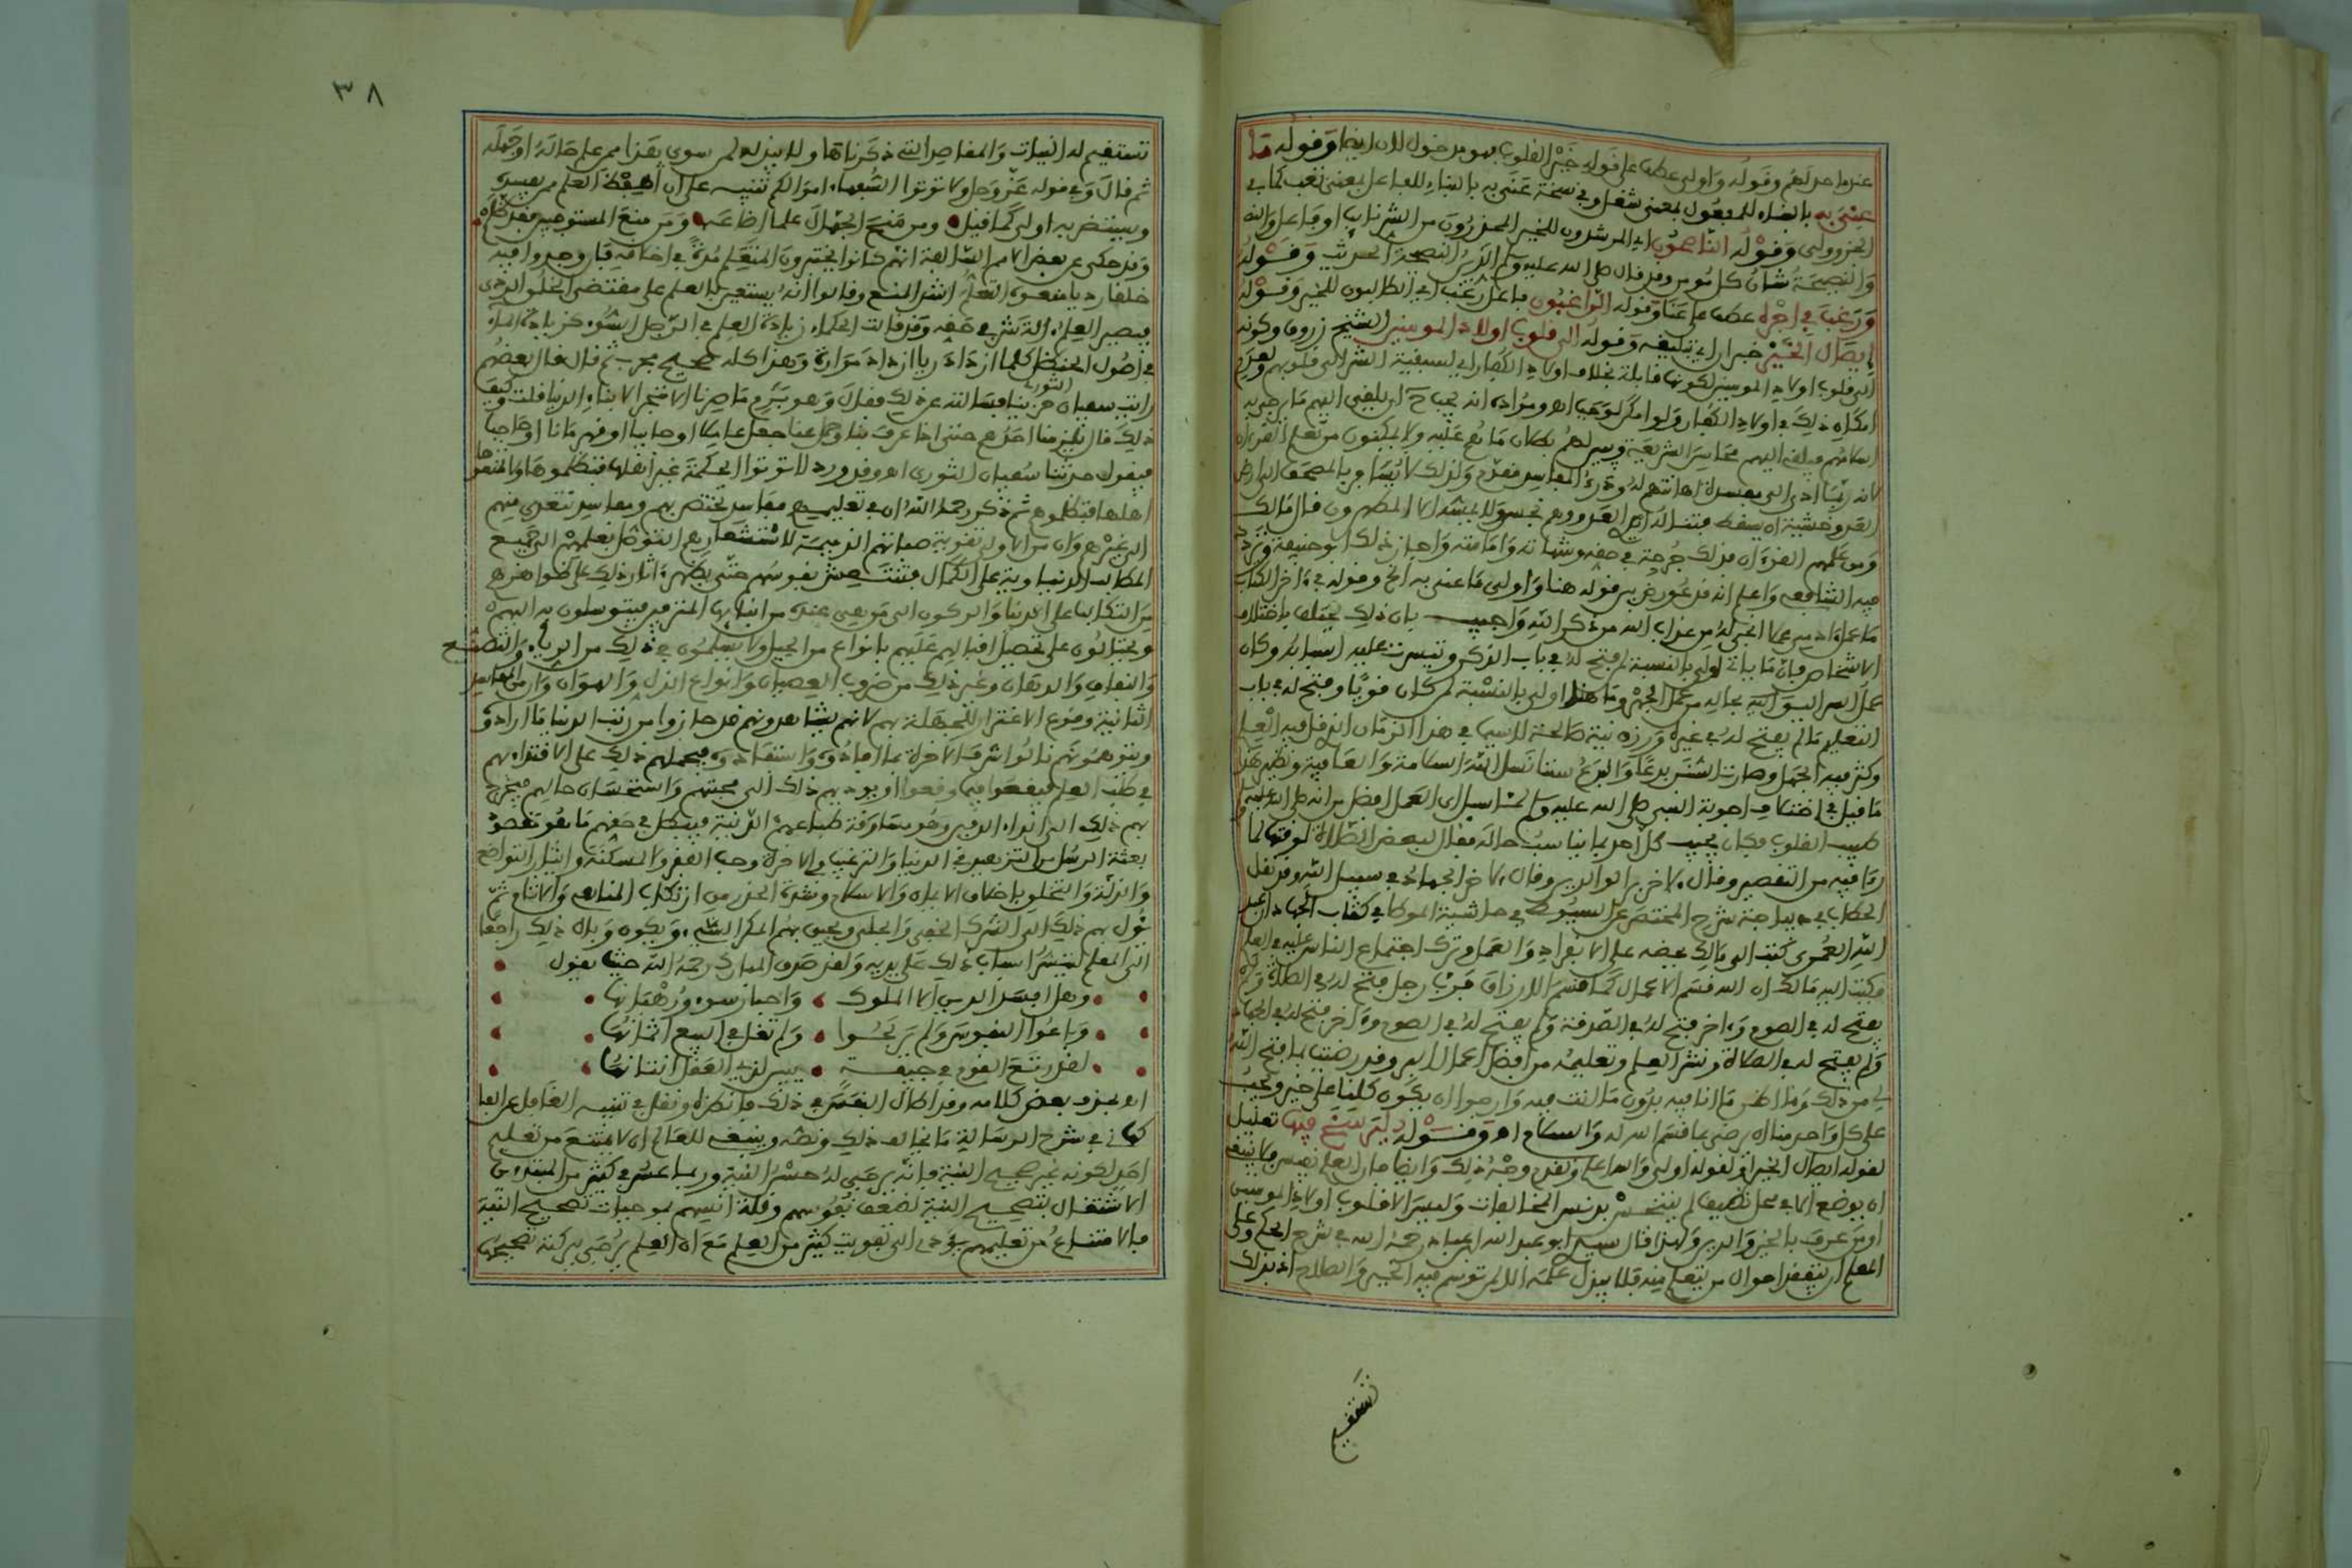 عندما حد لهم وقوله وأولى عطف على قوله خير القلوب فهو مدخول لان ايضا وقوله ما
عني به بالبناء للمفعول بمعنى شغل وفي نسخة عنى به بالبناء للفاعل بمعنى تعب كما في
الجزولى وقوله الناصحون اي المرشدون للخير المحذرون من الشر
والنصيحة شان كل مومن وقد قال صلى الله عليه وسلم الدين النصيحة الحديث وقوله
ورغب في اجره عطف على عنا وقوله الراغبون فاعل رغب اي الطالبون للخير وقوله
ايصال الخير خبر ان اي تبليغه وقوله الى قلوب اولاد المومنين الشيخ زروق وكونه
الى قلوب اولاد المومنين لكونها قابلة بخلاف اولاد الكفار اي لسبقية الشر الى قلوبهم
لانه ربما ادى الى مفسدة اهانتهم له ودرء المفاسد مقدم ولذلك لا يسافر بالمصحف الى ارض
العدو خشية ان يسقط فتناله ايدي العدو وهم نجس ولا يمسه الا المطهرون قال مالك
ومن علمهم القرءان فذلك جرحة في حقه وشهادته وامامته واجاز ذلك ابو حنيفة وتردد
فيه الشافعي واعلم انه قد عورض بين قوله هنا واولى ما عنى به الخ وقوله في ءاخر الكتاب
ما عمل ءادمي عملا انجى له من عذاب الله من ذكر الله واجيب بان ذلك يختلف باختلاف
الاشخاص فان ما ياتي اولى بالنسبة لمن فتح له في باب الذكر وتيسرت عليه اسبابه وكان
عمل السر اليق به بحاله من عمل الجهر وما هنا اولى بالنسبة لمن كان قويا وفتح له في باب
التعليم ما لم يفتح له في غيره ورزق نية صالحة لا سيما في هذا الزمان الذي قل فيه العلم
وكثر فيه الجهل وصارت السنن بدعا والبدع سننا نسل الله السلامة والعافية ونظير هذا
ما قيل في اختلاف اجوبة النبي صلى الله عليه وسلم لما سيل اي العمل افضل من انه صلى الله عليه وسلم
طبيب القلوب فكان يجيب كل احد بما يناسب حاله فقال لبعض الصلاة لوقتها لما
راى فيه من التقصير وقال لاخر بر الوالدين وقال لاخر الجهاد في سبيل الله وقد نقل
الحطاب في ديباجة شرح المختصر عن السيوطي في حاشية الموطا في كتاب الجهاد ان عبد
الله العمري كتب الى مالك يحضه على الانفراد والعمل وترك اجتماع الناس عليه في العلم
فكتب اليه مالك ان الله قسم الاعمال كما قسم الارزاق فرب رجل فتح له في الصلاة ولم
يفتح له في الصوم وءاخر فتح له في الصدقة ولم يفتح له في الصوم وءاخر فتح له في الجهاد
ولم يفتح له في الصلاة ونشر العلم وتعليمه من افضل اعمال البر وقد رضيت بما فتح الله
لي من ذلك وما اظن ما انا فيه بدون ما انت فيه وارجوا ان يكون كلانا على خير ويجب
على كل واحد منا ان يرضى بما قسم الله له والسلام اهـ وقوله ليرسخ فيها تعليل
لقوله ايصال الخير او لقوله اولى والله اعلم وتقدم وجه ذلك وايضا فان العلم نفيس فلا ينبغي
ان يوضع الا في محل نظيف لم يتنجس بدنس المخالفات وليس الا قلوب اولاد المومنين
او من عرف بالخير والدين ولهذا قال سيدي ابو عبد الله ابن عباد رحمه الله في شرح الحكم وعلى
المعلم ان يتفقد احوال من يتعلم منه فلا يبذل علمه الا لمن توسم فيه الخير والصلاح اذ بذلك
تستقيم
٣٨
تستقيم له النيات والمقاصد التي ذكرناها ولا يبذله لمن سوى هذا ممن علم حاله او جهله
ثم قال وفي قوله عز وجل ولا توتوا السفهاء اموالكم تنبيه على ان حفظ العلم ممن يفسده
ويستضر به اولى كما قيل • ومن منح الجهال علما اضاعه • ومن منع المستوجبين فقد ظلم •
وقد حكي عن بعض الامم السالفة انهم كانوا يختبرون المتعلم مدة في اخلاقه فان وجدوا فيه
خلقا رديا منعوه التعلم اشد المنع وقالوا انه يستعين بالعلم على مقتضى الخلق الردي
فيصير العلم ءالة شر في حقه وقد قالت الحكماء زيادة العلم في الرجل السوء كزيادة الماء
في اصول الحنظل كلما ازداد ريا ازداد مرارة وهذا كله صحيح مجرب ثم قال قال بعضهم
رايت سفيان الثوري حزينا فسالته عن ذلك فقال وهو برم ما صرنا الا متجرا لابناء الدنيا قلت وكيف
ذلك قال يلزمنا احدهم حتى اذا عرف بنا وحمل عنا جعل عاملا او جابيا او قهرمانا او حاجبا
فيقول حدثنا سفيان الثوري اهـ وقد ورد لا توتوا الحكمة غير اهلها فتظلموها ولا تمنعوها
اهلها فتظلموهم ثم ذكر رحمه الله ان في تعليمهم مفاسد تختص بهم ومفاسد تتعدى منهم
الى غيرهم وان من الاولى تقوية صفاتهم الذميمة لاستشعارهم التوصل بعلمهم الى جميع
المطالب الدنياوية على الكمال فتنتعش نفوسهم حتى يظهر ءاثار ذلك على ظواهرهم
من التكالب على الدنيا والركون الى من هي عنده من ابنايها المترفين فيتوسلون به اليهم
ويحتالون على تحصيل اقبالهم عليهم بانواع من الحيل ولا يسلمون في ذلك من الرياء والتصنع
والنفاق والادهان وغير ذلك من ضروب العصيان وانواع الذل والهوان وان من المفاسد
الثانية وقوع الاغترار للجهلة بهم لانهم يشاهدونهم قد حازوا من رتب الدنيا ما ارادوه
ويتوهمونهم نالوا شرف الاخرة بما افادوه واستفادوه فيحملهم ذلك على الاقتداء بهم
في طلب العلم فيقعوا فيما وقعوا او يوديهم ذلك الى محبتهم واستحسان حالهم فيجر
بهم ذلك الى الداء الدفين وهو مسارقة طباعهم الدنية فيبطل في حقهم ما هو مقصود
بعثة الرسل من التزهيد في الدنيا والترغيب في الاخرة وحب الفقر والمسكنة وايثار التواضع
والذلة والتخلق باخلاق الايمان والاسلام وشدة الحذر من ارتكاب المناهي والاثام ثم
يول بهم ذلك الى الشرك الخفي والجلي ويحيق بهم المكر السيء ويكون وبال ذلك راجعا
الى المعلم لتيسر اسباب ذلك على يديه ولقد صدق ابن المبارك رحمه الله حيث يقول •
• وهل افسد الدين الا الملوك • واحبار سوء ورهبانها •
• وباعوا النفوس ولم يربحوا • ولم تغل في البيع اثمانها •
• لقد رتع القوم في جيفة • يبين لذي العقل انتانها •
اهـ بحذف بعض كلامه وقد اطال النفس في ذلك فانظره ونقل في تنبيه الغافل عن القلشاني
في شرح الرسالة ما يخالف ذلك ونصه وينبغي للعالم ان لا يمتنع من تعليم
احد لكونه غير صحيح النية فانه يرجى له حسن النية وربما عسر في كثير من المبتدئين
الاشتغال بتصحيح النية لضعف نفوسهم وقلة انسهم بموجبات تصحيح النية
فالامتناع من تعليمهم يؤدي الى تفويت كثير من العلم مع ان العلم يرجى ببركته تصحيحها